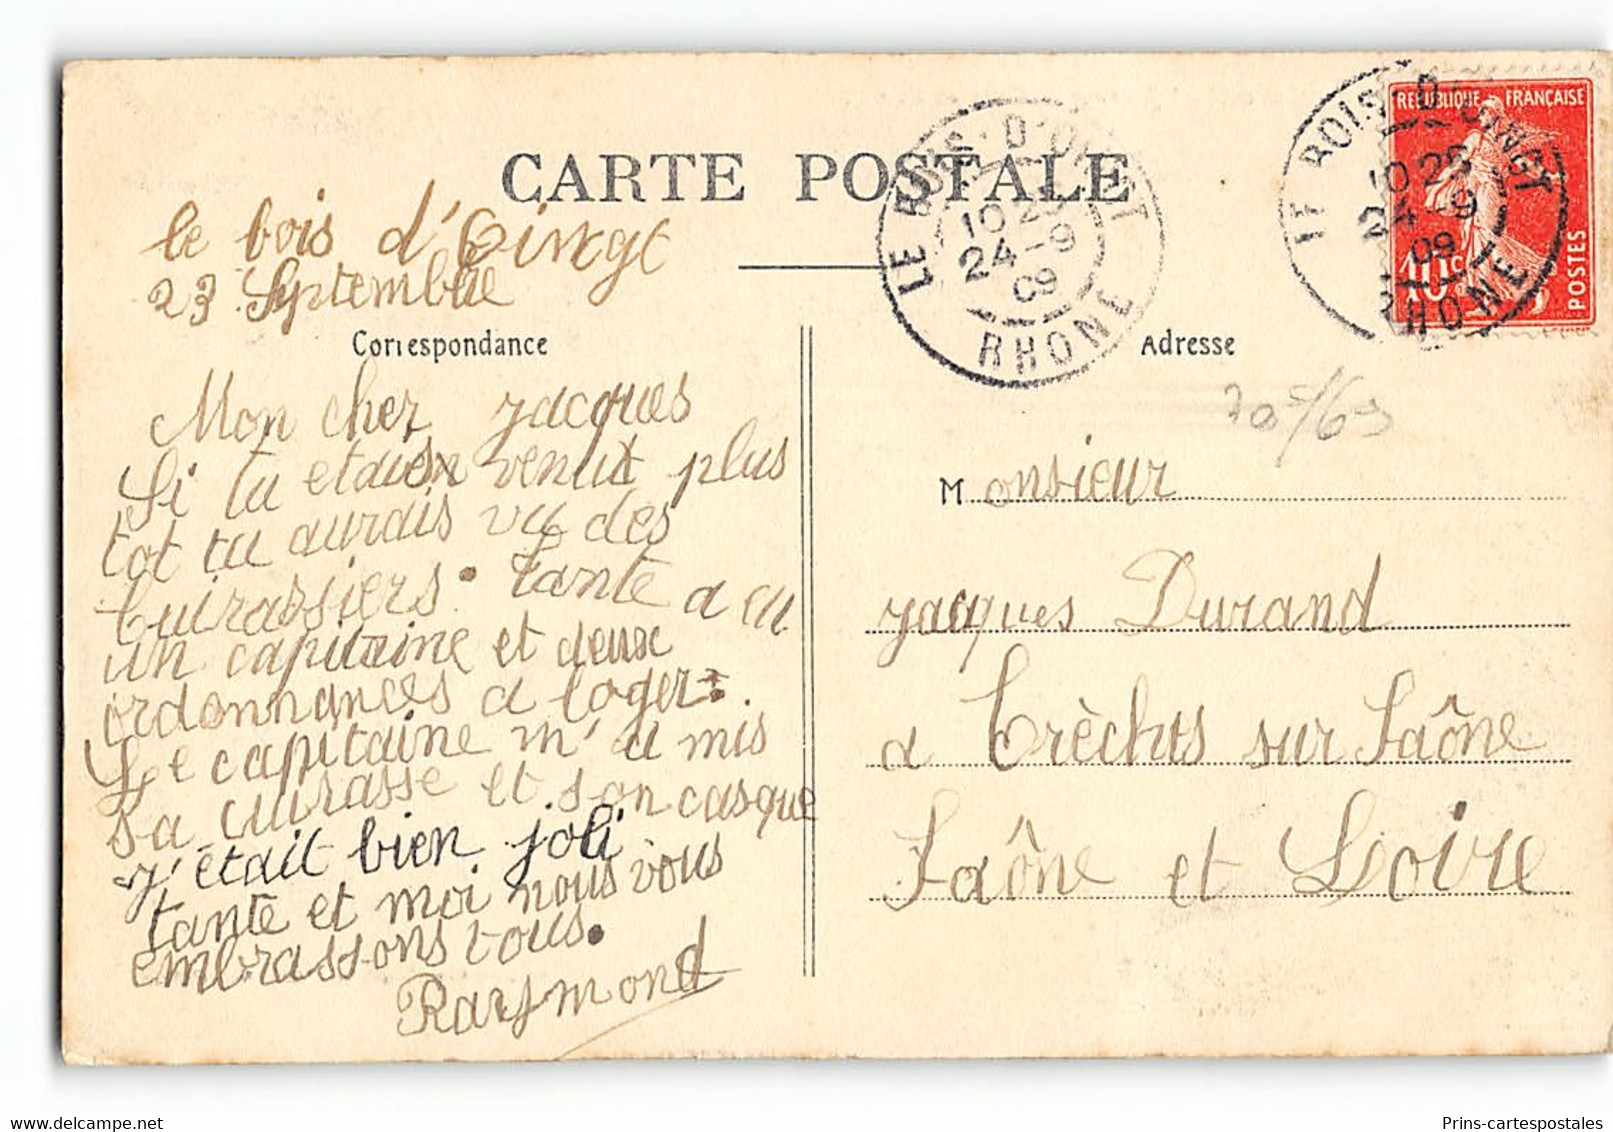 CARTE POSTALE
le bois d'Oingt
23 Septembre
Correspondance
Mon cher jacques
Si tu etais venu plus
tot tu aurais vu des
Cuirassiers. Tante a eu
un capitaine et deux
ordonnances a loger.
Le capitaine m'a mis
sa cuirasse et son casque
j'était bien joli
tante et moi nous vous
embrassons tous.
Raymond
LE BOIS-D'OINGT
10 25
24-9
09
RHONE
LE BOIS-D'OINGT
10 25
24-9
09
RHONE
REPUBLIQUE FRANÇAISE
10c
POSTES
Adresse
Monsieur
jacques Durand
a Crèches sur Saône
Saône et Loire
Prins-cartespostales